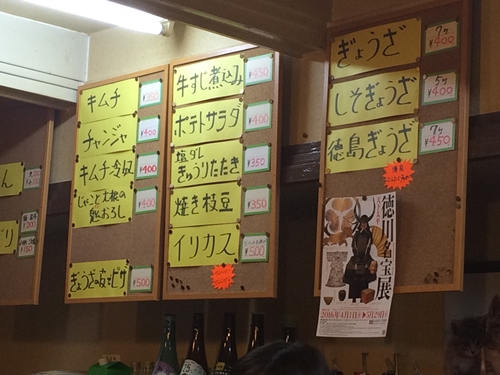 キムチ
¥350
チャンジャ
¥400
キムチ冷奴
¥400
じゃこと大根の
¥400
ぎょうざの皮でピザ
¥500
牛すじ煮込み
¥450
ポテトサラダ
¥400
塩ダレ
きゅうりたたき
¥350
焼き枝豆
¥350
イリカス
¥500
ぎょうざ
7ヶ
¥400
しそぎょうざ
5ヶ
¥400
徳島ぎょうざ
7ヶ
¥450
徳川名宝展
2016年4月1日
5月29日